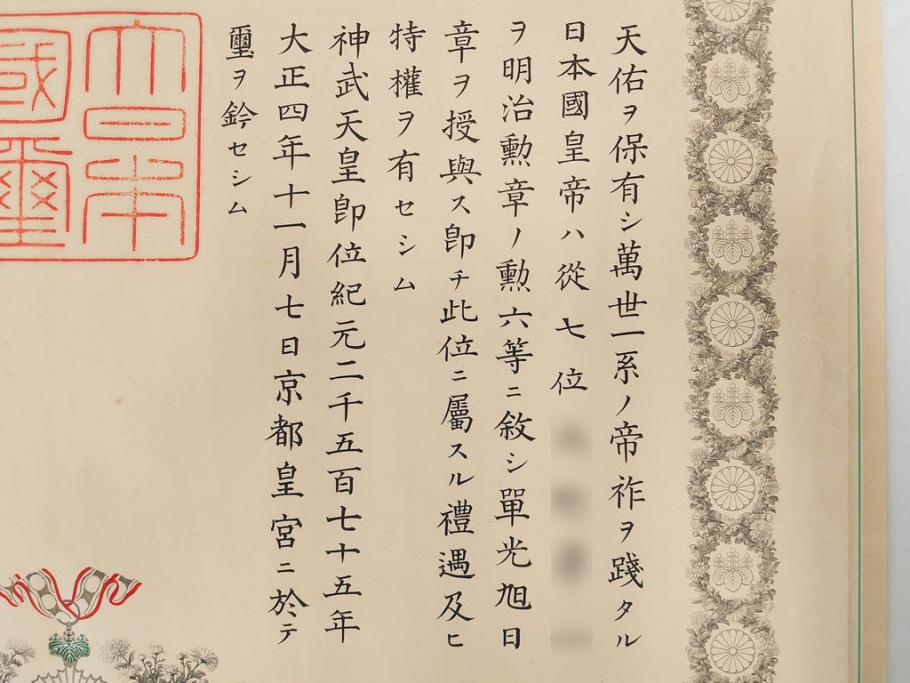 天佑ヲ保有シ萬世一系ノ帝祚ヲ踐タル
日本國皇帝ハ從七位
ヲ明治勲章ノ勲六等ニ敘シ單光旭日
章ヲ授與ス卽チ此位ニ屬スル禮遇及ヒ
特權ヲ有セシム
神武天皇卽位紀元二千五百七十五年
大正四年十一月七日京都皇宮ニ於テ
璽ヲ鈐セシム
大日本
國璽